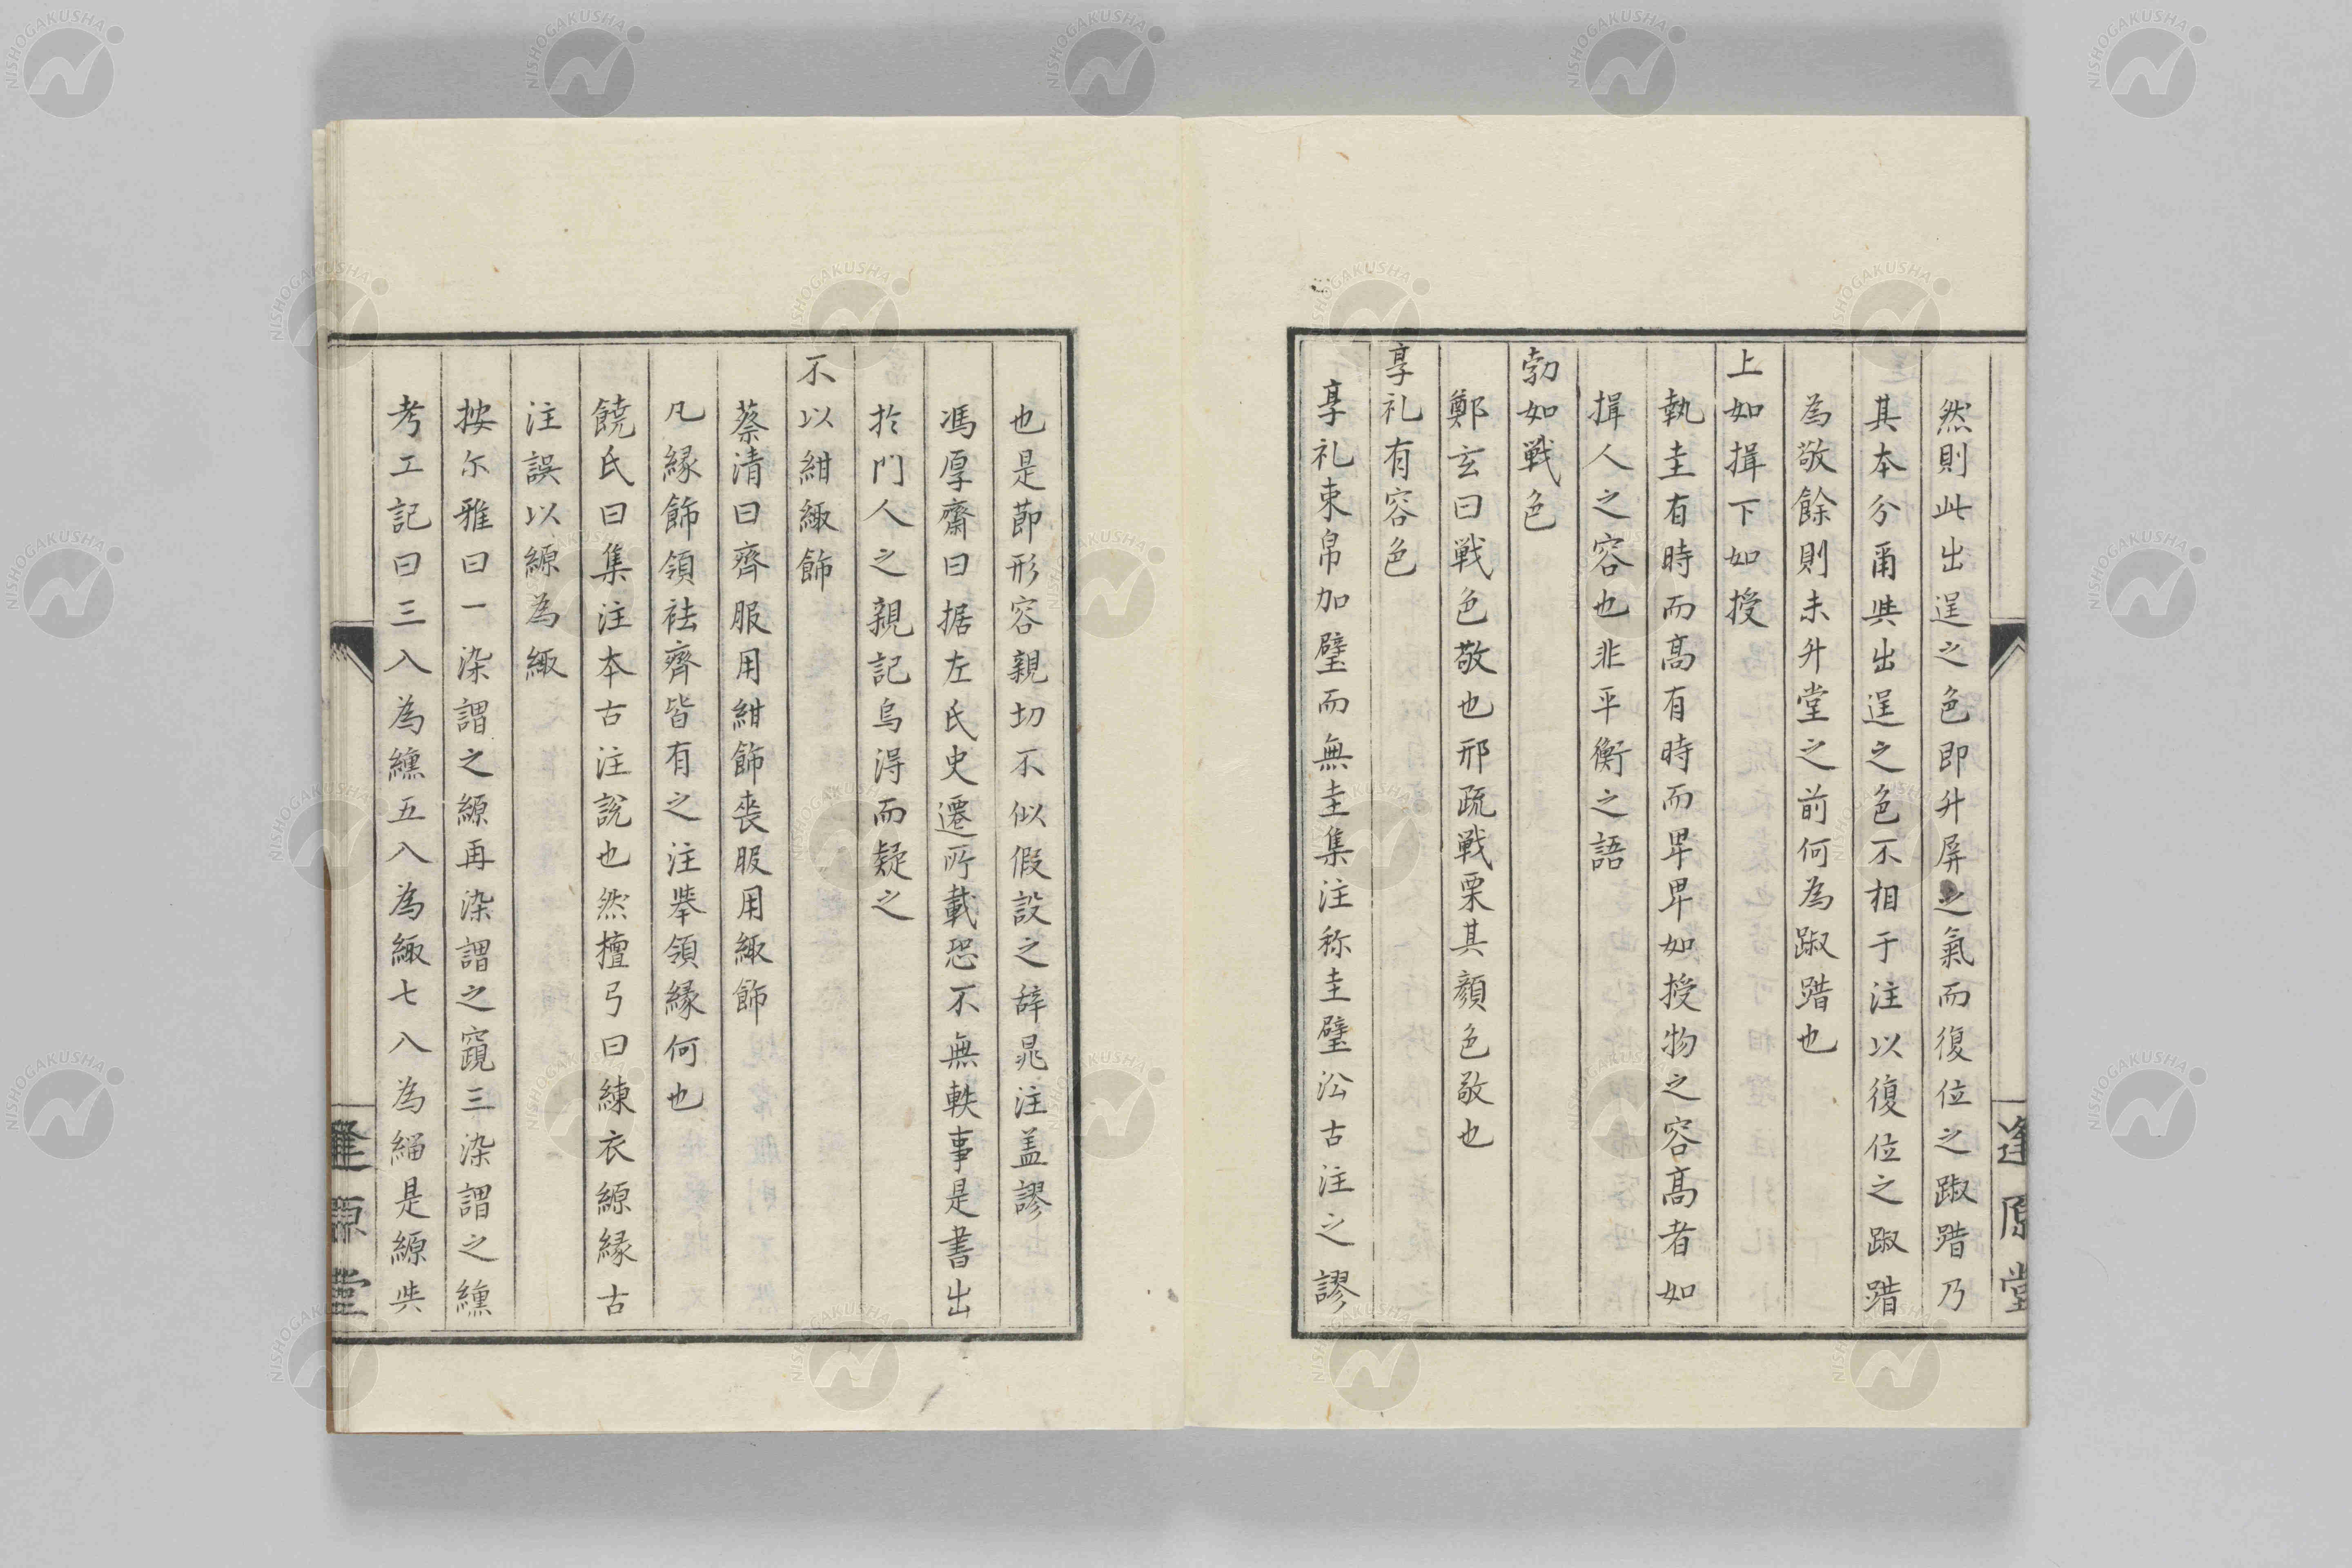 然則此出逞之色即升屏之氣而復位之踧踖乃
其本分甬與出逞之色不相干注以復位之踧踖
為敬餘則未升堂之前何為踧踖也
上如揖下如授
執圭有時而高有時而卑卑如授物之容高者如
揖人之容也非平衡之語
勃如戦色
鄭玄曰戦色敬也邢疏戦栗其顏色敬也
享礼有容色
享礼束帛加璧而無圭集注称圭璧㳂古注之謬
逢原堂
也是莭形容親切不似假設之辞晁注盖謬
馮厚齋曰据左氏史遷所載恐不無軼事是書出
於門人之親記烏淂而疑之
不以紺緅飾
蔡清曰齊服用紺飾喪服用緅飾
凡縁飾領袪齊皆有之注舉領縁何也
饒氏曰集注本古注說也然檀弓曰練衣縓縁古
注誤以縓為緅
按尓雅曰一染謂之縓再染謂之竀三染謂之纁
考工記曰三入為纁五入為緅七入為緇是縓與
逢原堂